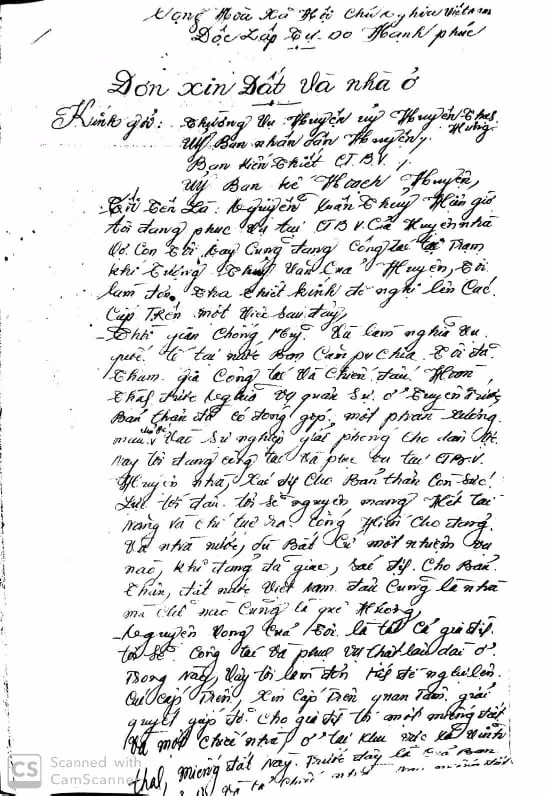 Cộng Hòa Xã Hội Chủ nghĩa Việt nam
Độc Lập Tự do Hạnh phúc
Đơn xin Đất và nhà ở
Kính gửi: Thường vụ Huyện ủy Huyện
Hưng
Uỷ Ban nhân dân Huyện,
Ban kiến thiết CT.B.V.
Uỷ Ban kế Hoạch Huyện,
Tôi tên Là: Nguyễn Xuân Thuỷ Hiện giờ
tôi đang phục vụ tại CT.B.V. của Huyện nhà
Vợ con tôi nay cũng đang công tác tại Trạm
khí tượng Thuỷ Văn của Huyện, Tôi
làm đơn Tha thiết kính đề nghị lên Các
Cấp Trên một việc sau đây,
Thời gian chống Mỹ và làm nghĩa vụ
quốc tế tại nước bạn Cam pu chia. Tôi đã
Tham gia Công tác và chiến đấu, Hoàn
nghĩa vụ quân sự. ở
Bản thân đã có đóng góp một phần xương
máu vào sự nghiệp giải phóng cho dân tộc
nay tôi đang công tác và phục vụ tại CT.B.V.
Huyện nhà, Cho Bản thân còn sức
tới đâu tôi sẽ nguyện mang Hết tài
năng và chí tuệ ra cống Hiến cho đảng
và nhà nước, dù Bất Cứ một nhiệm vụ
nào, khi đảng đã giao, Cho Bản
Thân, đất nước Việt Nam đâu Cũng là nhà
mà chỗ nào Cũng là quê Hương,
Nguyện Vọng Của Tôi là tất Cả gia đình
tôi sẽ công tác và phục vụ thật lâu dài ở
Trong này, Vậy tôi làm đơn đề nghị lên
Cấp Trên, Xin Cấp Trên quan Tâm, giải
quyết giúp đỡ Cho gia đình tôi một miếng đất
Và một chiếc nhà, ở tại khu vực xã Vĩnh
thái, miếng đất này. Trước đây là của Ban
CS Scanned with
CamScanner